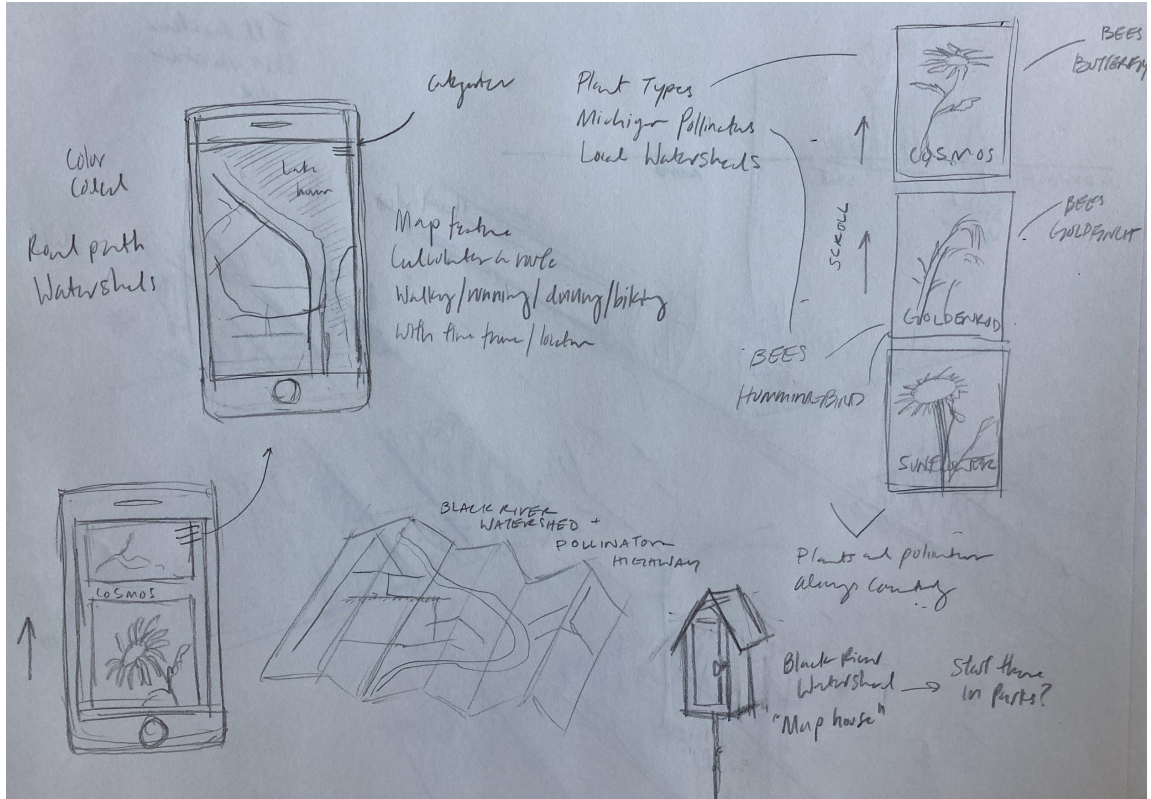 Categories
Color
Coded
Road path
Watersheds
Lake
huron
Map feature
Calculates a route
Walking/running/driving/biking
with time frame/location
Plant Types
Michigan Pollinators
Local Watersheds
SCROLL
COSMOS
BEES
BUTTERFLY
GOLDENROD
BEES
GOLDFINCH
SUNFLOWER
BEES
HUMMINGBIRD
Plants and pollinators
always
COSMOS
BLACK RIVER
WATERSHED +
POLLINATOR
HIGHWAY
Black River
Watershed
"Map house"
Start these
in parks?